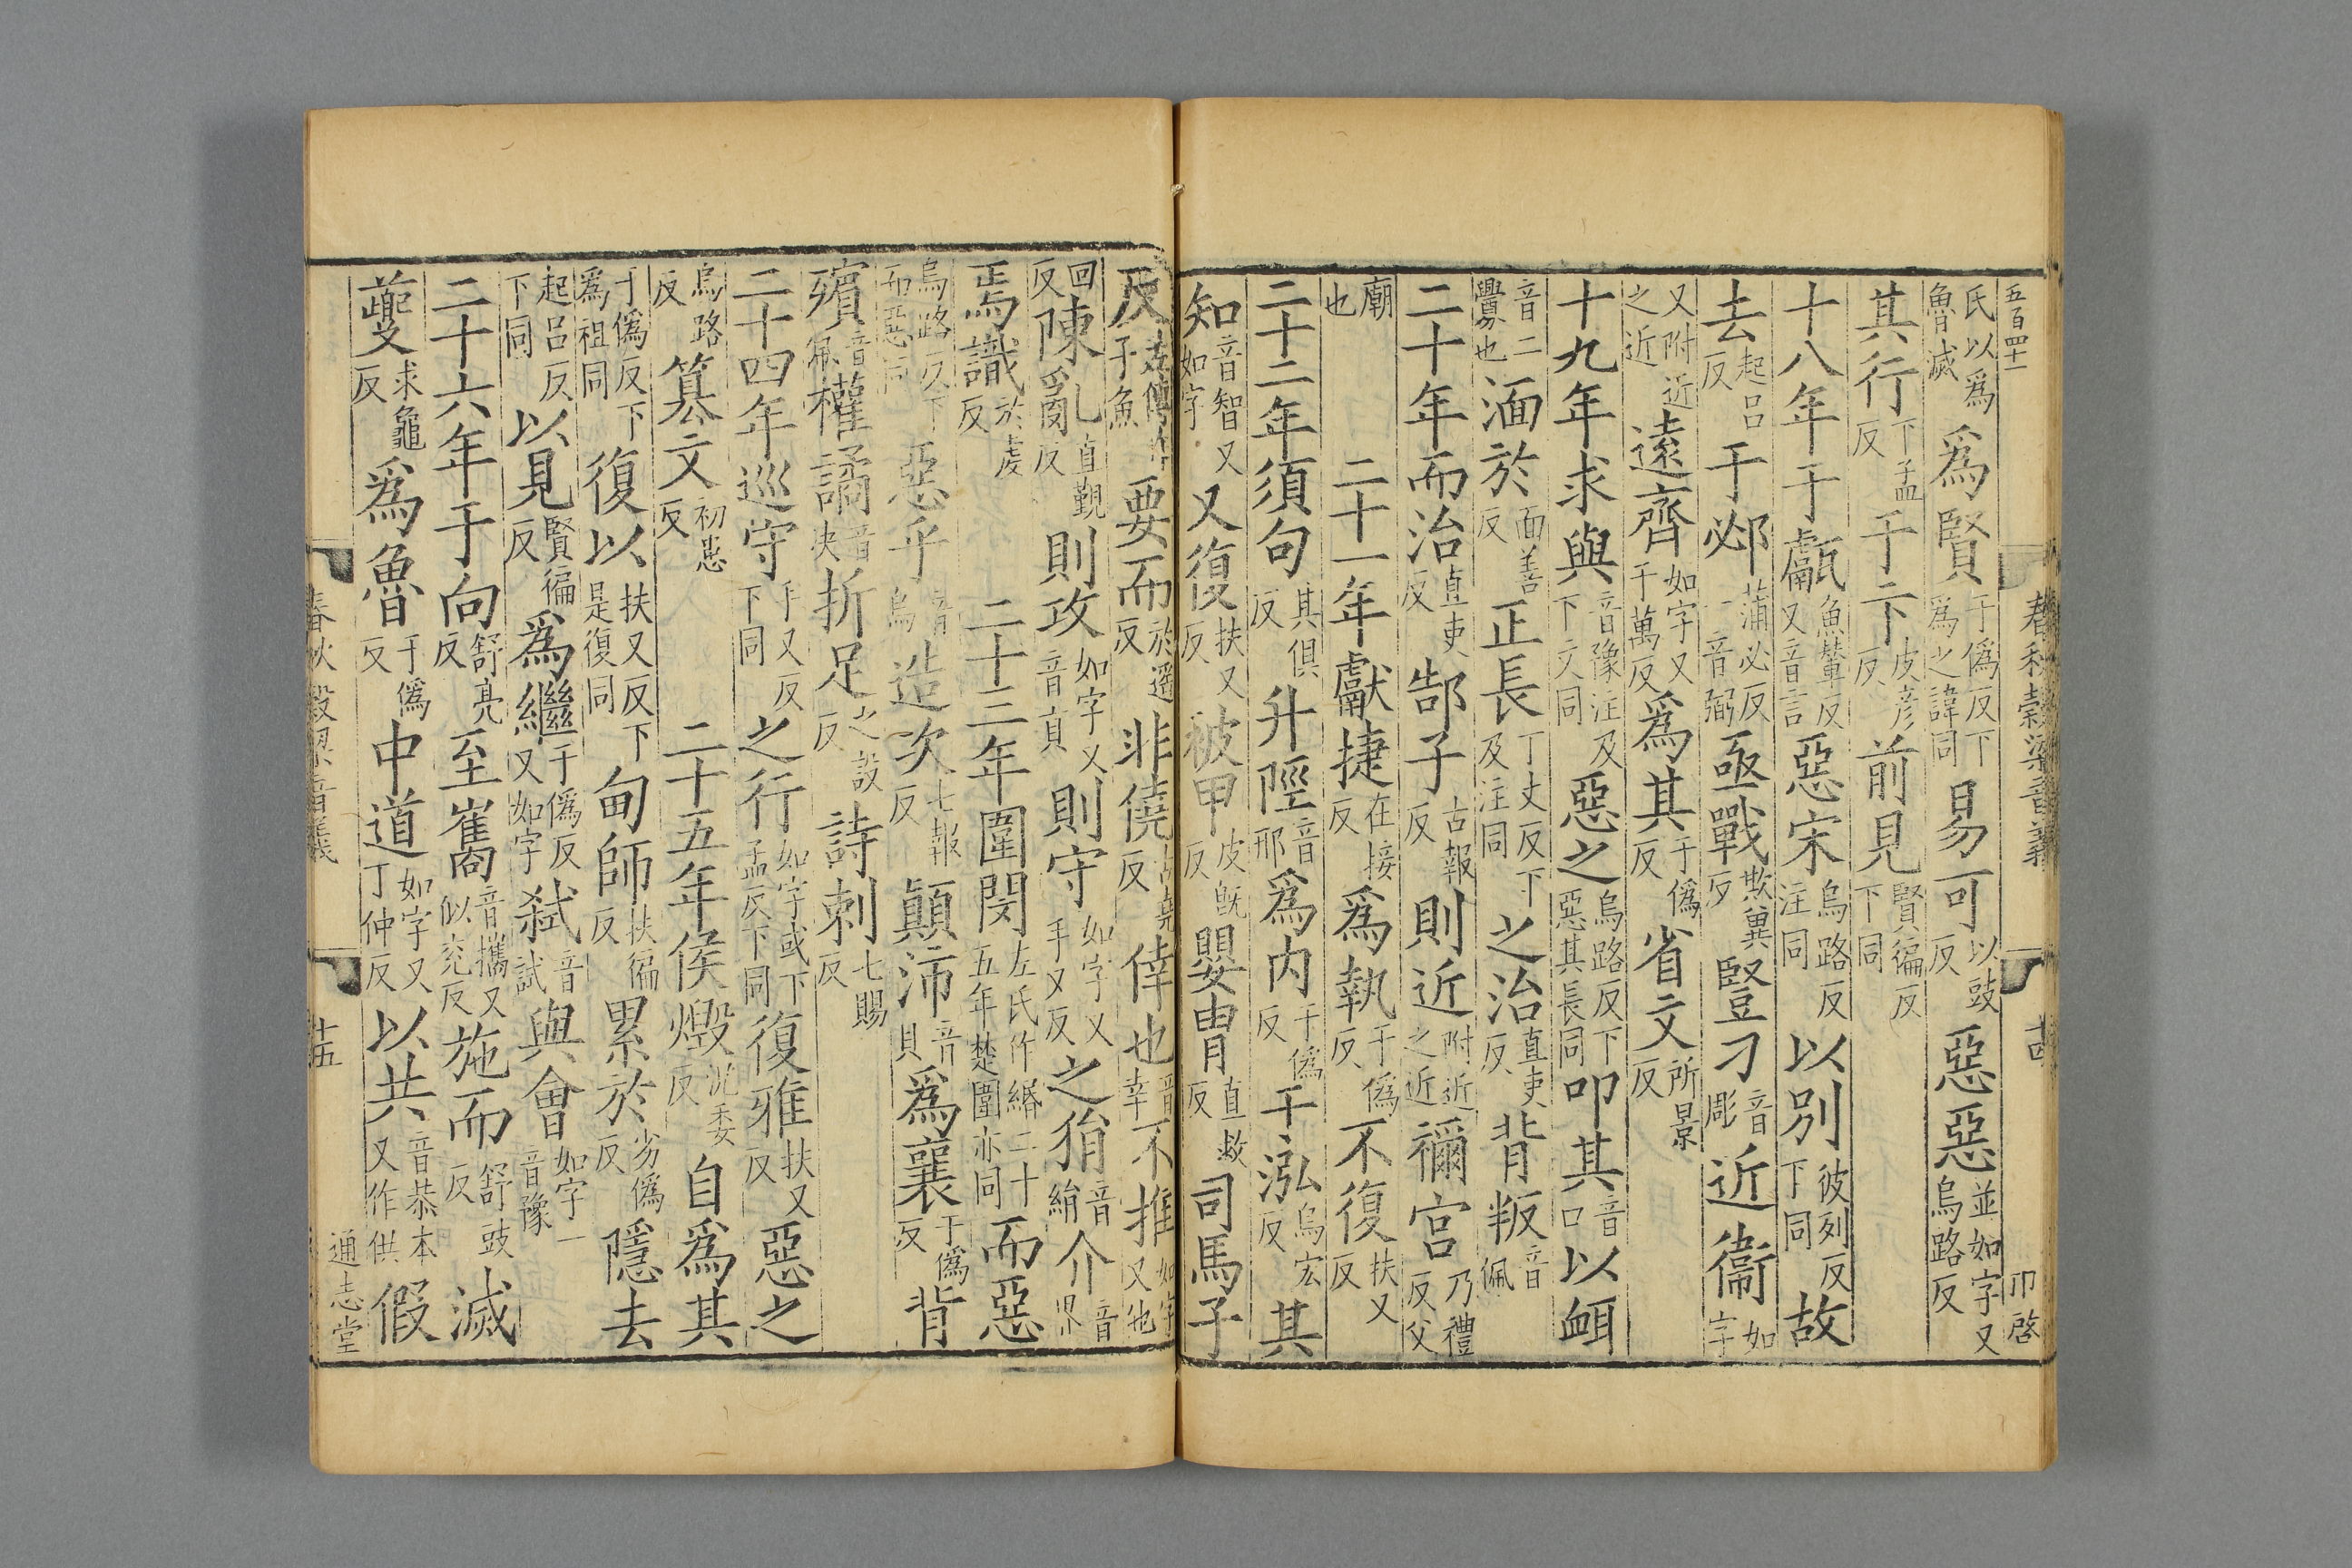 五百四十二
春秋穀梁音義
十四
卬啓
氏以為魯滅為賢于偽反下為之諱同易可以豉反惡惡並如字又烏路反
其行下孟反于卞皮彥反前見賢徧反下同
十八年于甗魚輦反又音言惡宋烏路反注同以別彼列反下同故
去起呂反于邲蒲必反一音弼亟戰欺兾反豎刁音彫近衞如字
又附近之近遠齊如字又于萬反為其于偽反省文所景反
十九年求與音豫注及下文同惡之烏路反下惡其長同叩其音口以衈
音二釁也湎於面善反正長丁丈反下及注同之治直吏反背叛音佩
二十年而治直吏反郜子古報反則近附近之近禰宮乃禮反父
廟也二十一年獻捷在接反為執于偽反不復扶又反
二十二年須句其俱反升陘音邢為内于偽反于泓烏宏反其
知音智又如字又復扶又反被甲皮旣反嬰冑直救反司馬子
反子魚要而於遥反非僥古堯反倖也音幸不推如字又他
回反陳亂直覲反則攻如字又音貢則守如字又手又反之狷音絹介音界
焉識於虔反二十三年圍閔左氏作緡二十五年楚圍亦同而惡
烏路反下而惡同惡乎音烏造次七報反顛沛音貝為襄于偽反背
殯音佩權譎音決折足之設反詩刺七賜反
二十四年巡守手又反下同之行如字或下孟反下同復雅扶又反惡之
烏路反簒文初患反二十五年侯燬況委反自為其
于偽反下為祖同復以扶又反下是復同甸師扶徧反累於劣偽反隱去
起呂反下同以見賢徧反為繼于偽反又如字弑音試與會如字一音豫
二十六年于向舒亮反至巂音攜又似兖反施而舒豉反滅
夔求龜反為魯于偽反中道如字又丁仲反以共音恭本又作供假
春秋穀梁音義
十五
通志堂